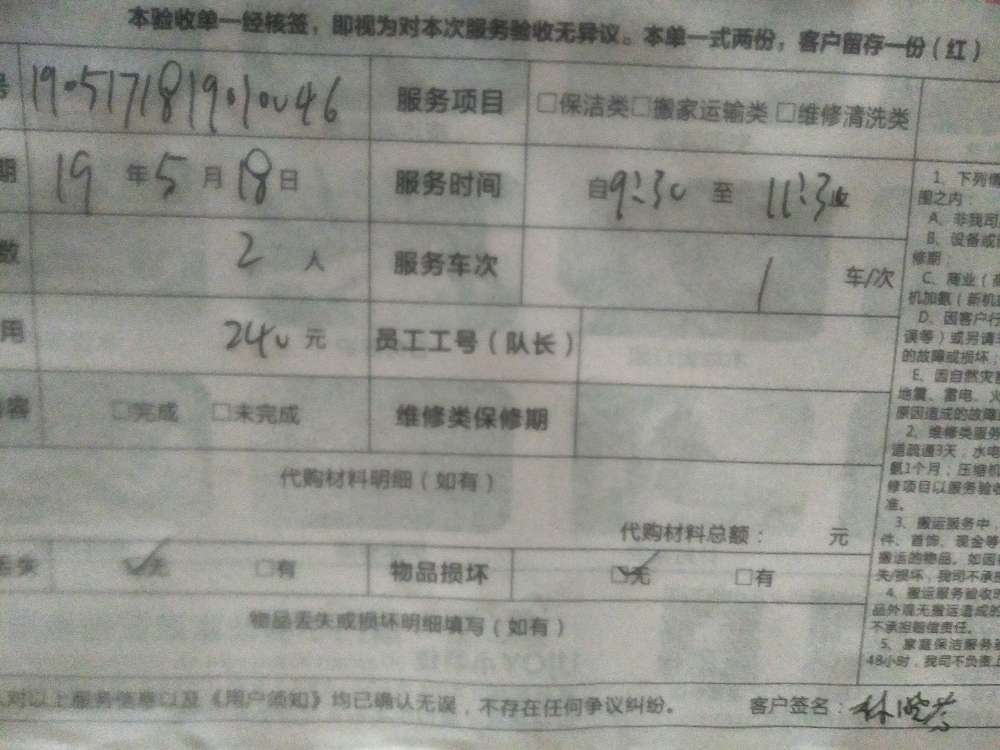 本验收单一经核签，即视为对本次服务验收无异议。本单一式两份，客户留存一份（红）
号 1905171819010046 服务项目 □保洁类□搬家运输类 □维修清洗类
期 19 年 5 月 18 日 服务时间 自 9:30 至 11:30
数 2 人 服务车次 1 车/次
用 240 元 员工工号（队长）
容 □完成 □未完成 维修类保修期
代购材料明细（如有）
代购材料总额： 元
丢失 ☑无 □有 物品损坏 ☑无 □有
物品丢失或损坏明细填写（如有）
人对以上服务信息以及《用户须知》均已确认无误，不存在任何争议纠纷。 客户签名：林
1、下列情
围之内：
A、非我司
B、设备或
修期；
C、商业（
机加氨（新机
D、因客户行
误等）或另请
的故障或损坏
E、因自然灾
地震、雷电、火
原因造成的故障
2、维修类服务
道疏通3天，水电
氨1个月；压缩机
修项目以服务验收
准。
3、搬运服务中，
件、首饰、现金等
搬运的物品。如因
失/损坏，我司不承
4、搬运服务验收
品外观无搬运造成的
不承担赔偿责任。
5、家庭保洁服务
48小时，我司不负责